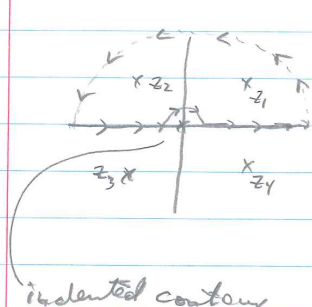 x z₂
x z₁
z₃ x
x z₄
indented contour